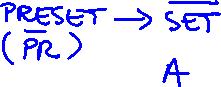 PRESET → S̅E̅T̅
(P̅R̅)
A